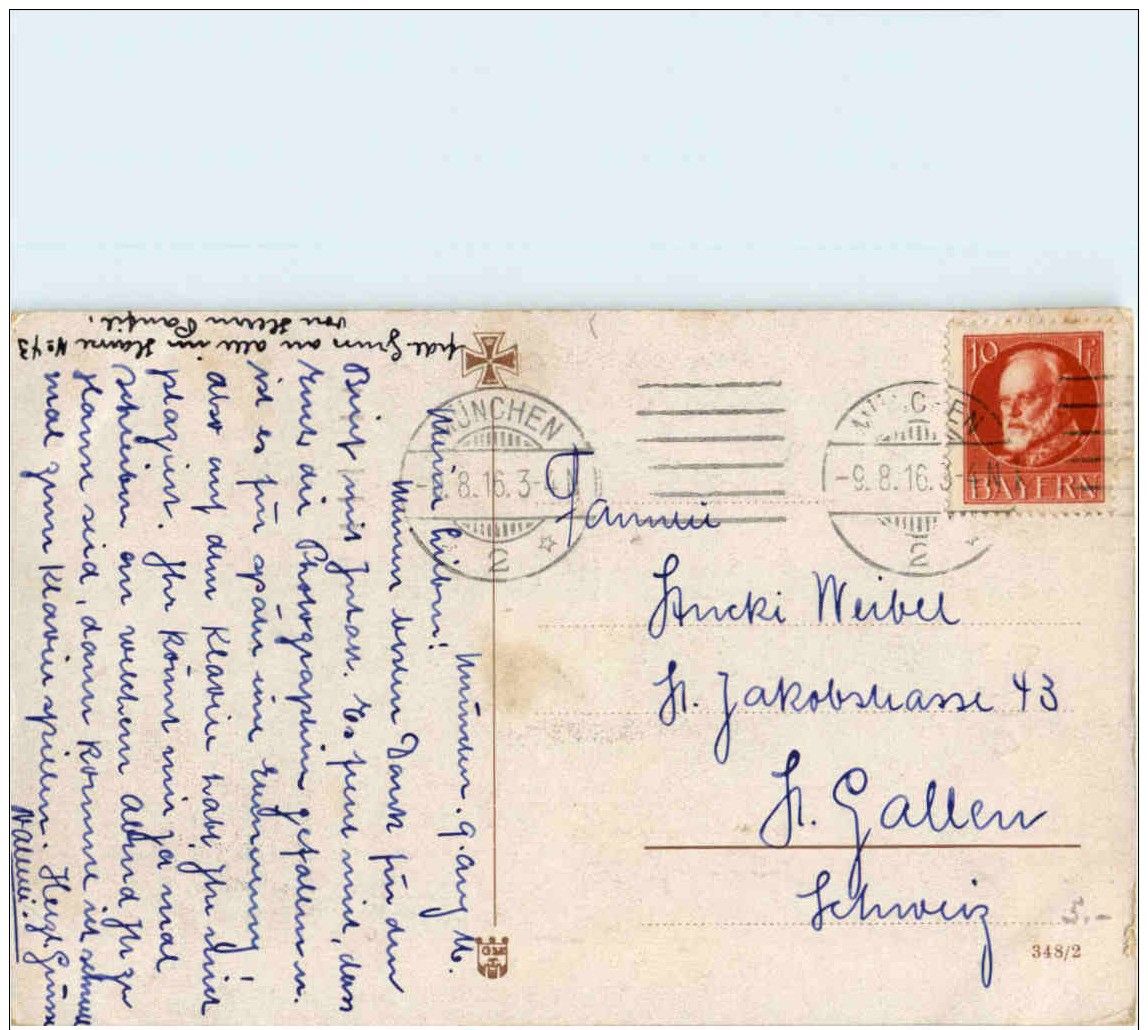 München. 9. Aug. 16.
Meine lieben!
Meinen besten Dank für den
Brief von Johan. Es freut mich, dass
Euch die Photographien gefallen u.
ist es für später eine Erinnerung!
Aber mit dem Klavier habt Ihr mich
plagiert. Ihr könnt mir ja mal
schreiben an welchem Abend Ihr zu
Hause seid, dann komme ich schnell
mal zum Klavier spielen. Herzl. Grüsse
Valerie.
Gruss an alle im Hause No 43
von Herrn
MÜNCHEN
8.16.3-4 N
2
MÜNCHEN
-9.8.16.3-4 N
2
10 Pf
BAYERN
Familie
Stucki Weibel
St. Jakobstrasse 43
St. Gallen
Schweiz
348/2